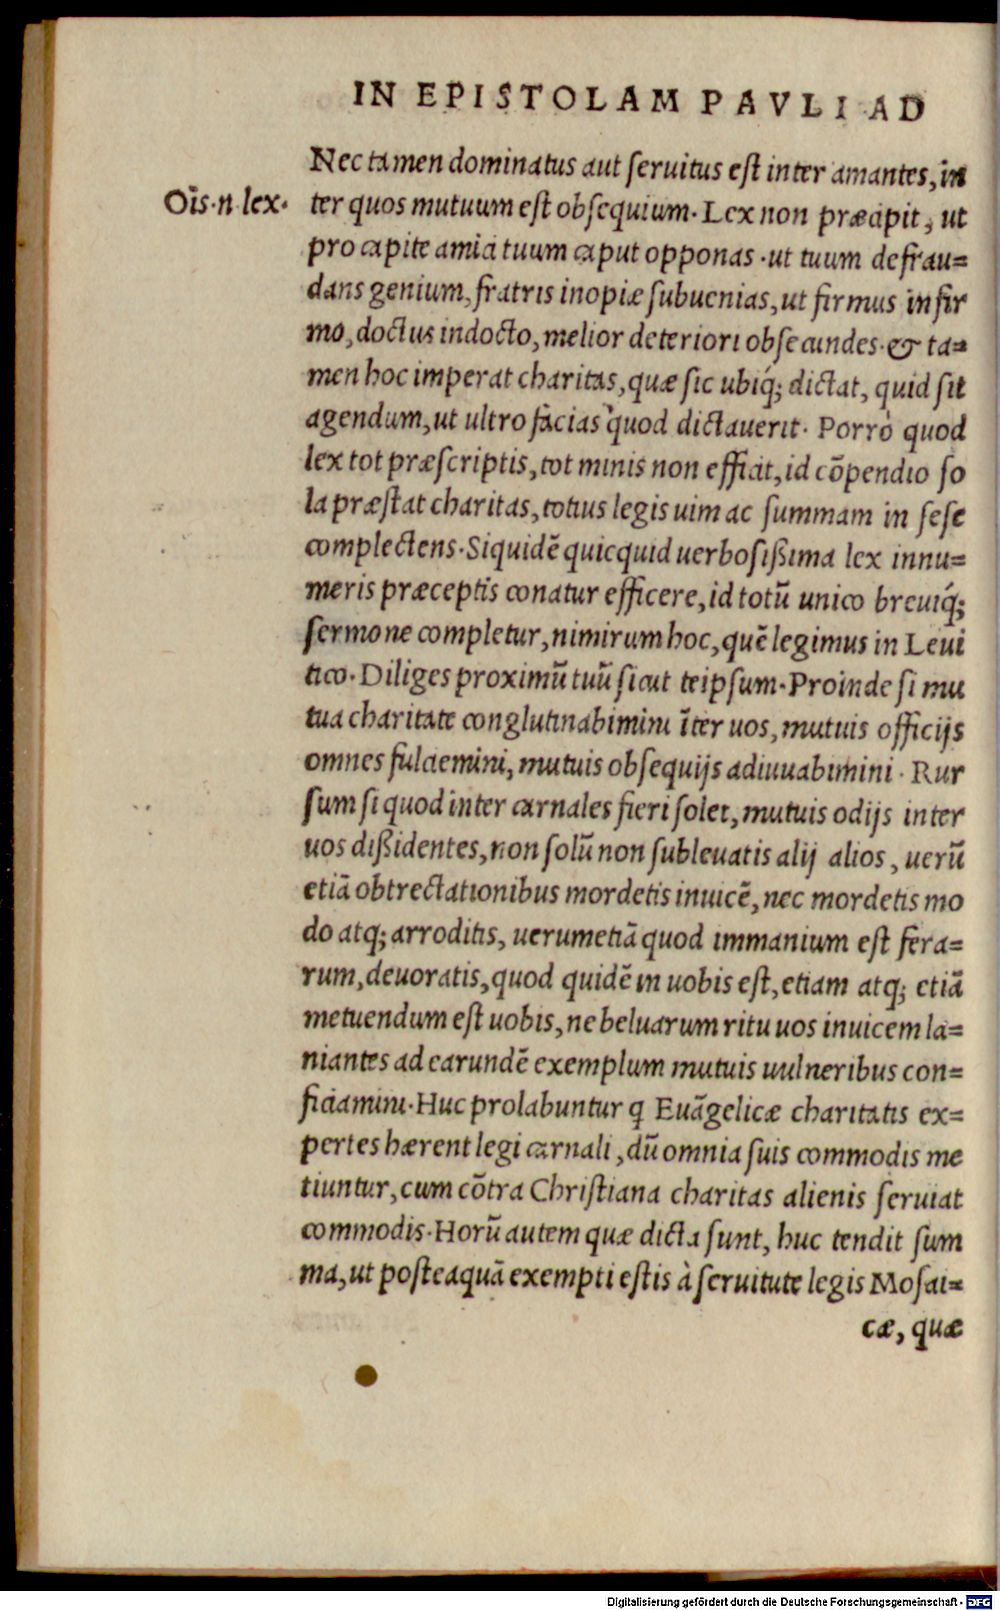 IN EPISTOLAM PAVLI AD
Nec tamen dominatus aut seruitus est inter amantes, in
Oīs·n·lex·
ter quos mutuum est obsequium· Lex non præcipit, ut
pro capite amici tuum caput opponas ·ut tuum defrau=
dans genium, fratris inopiæ subuenias, ut firmus infir
mo, doctus indocto, melior deteriori obsecundes·& ta=
men hoc imperat charitas, quæ sic ubiq́; dictat, quid sit
agendum, ut ultro facias quod dictauerit· Porrò quod
lex tot præscriptis, tot minis non efficit, id cōpendio so
la præstat charitas, totius legis uim ac summam in sese
complectens·Siquidē quicquid uerbosißima lex innu=
meris præceptis conatur efficere, id totū unico breuiq́;
sermone completur, nimirum hoc, quē legimus in Leui
tico·Diliges proximū tuū sicut teipsum·Proinde si mu
tua charitate conglutinabimini īter uos, mutuis officijs
omnes fulciemini, mutuis obsequijs adiuuabimini· Rur
sum si quod inter carnales fieri solet, mutuis odijs inter
uos dißidentes, non solū non subleuatis alij alios, uerū
etiā obtrectationibus mordetis inuicē, nec mordetis mo
do atq; arroditis, uerumetiā quod immanium est fera=
rum, deuoratis, quod quidē in uobis est, etiam atq; etiā
metuendum est uobis, ne beluarum ritu uos inuicem la=
niantes ad earundē exemplum mutuis uulneribus con=
ficiamini·Huc prolabuntur q Euāgelicæ charitatis ex=
pertes hærent legi carnali, dū omnia suis commodis me
tiuntur, cum cōtra Christiana charitas alienis seruiat
commodis·Horū autem quæ dicta sunt, huc tendit sum
ma, ut posteaquā exempti estis à seruitute legis Mosai=
cæ, quæ
Digitalisierung gefördert durch die Deutsche Forschungsgemeinschaft - DFG